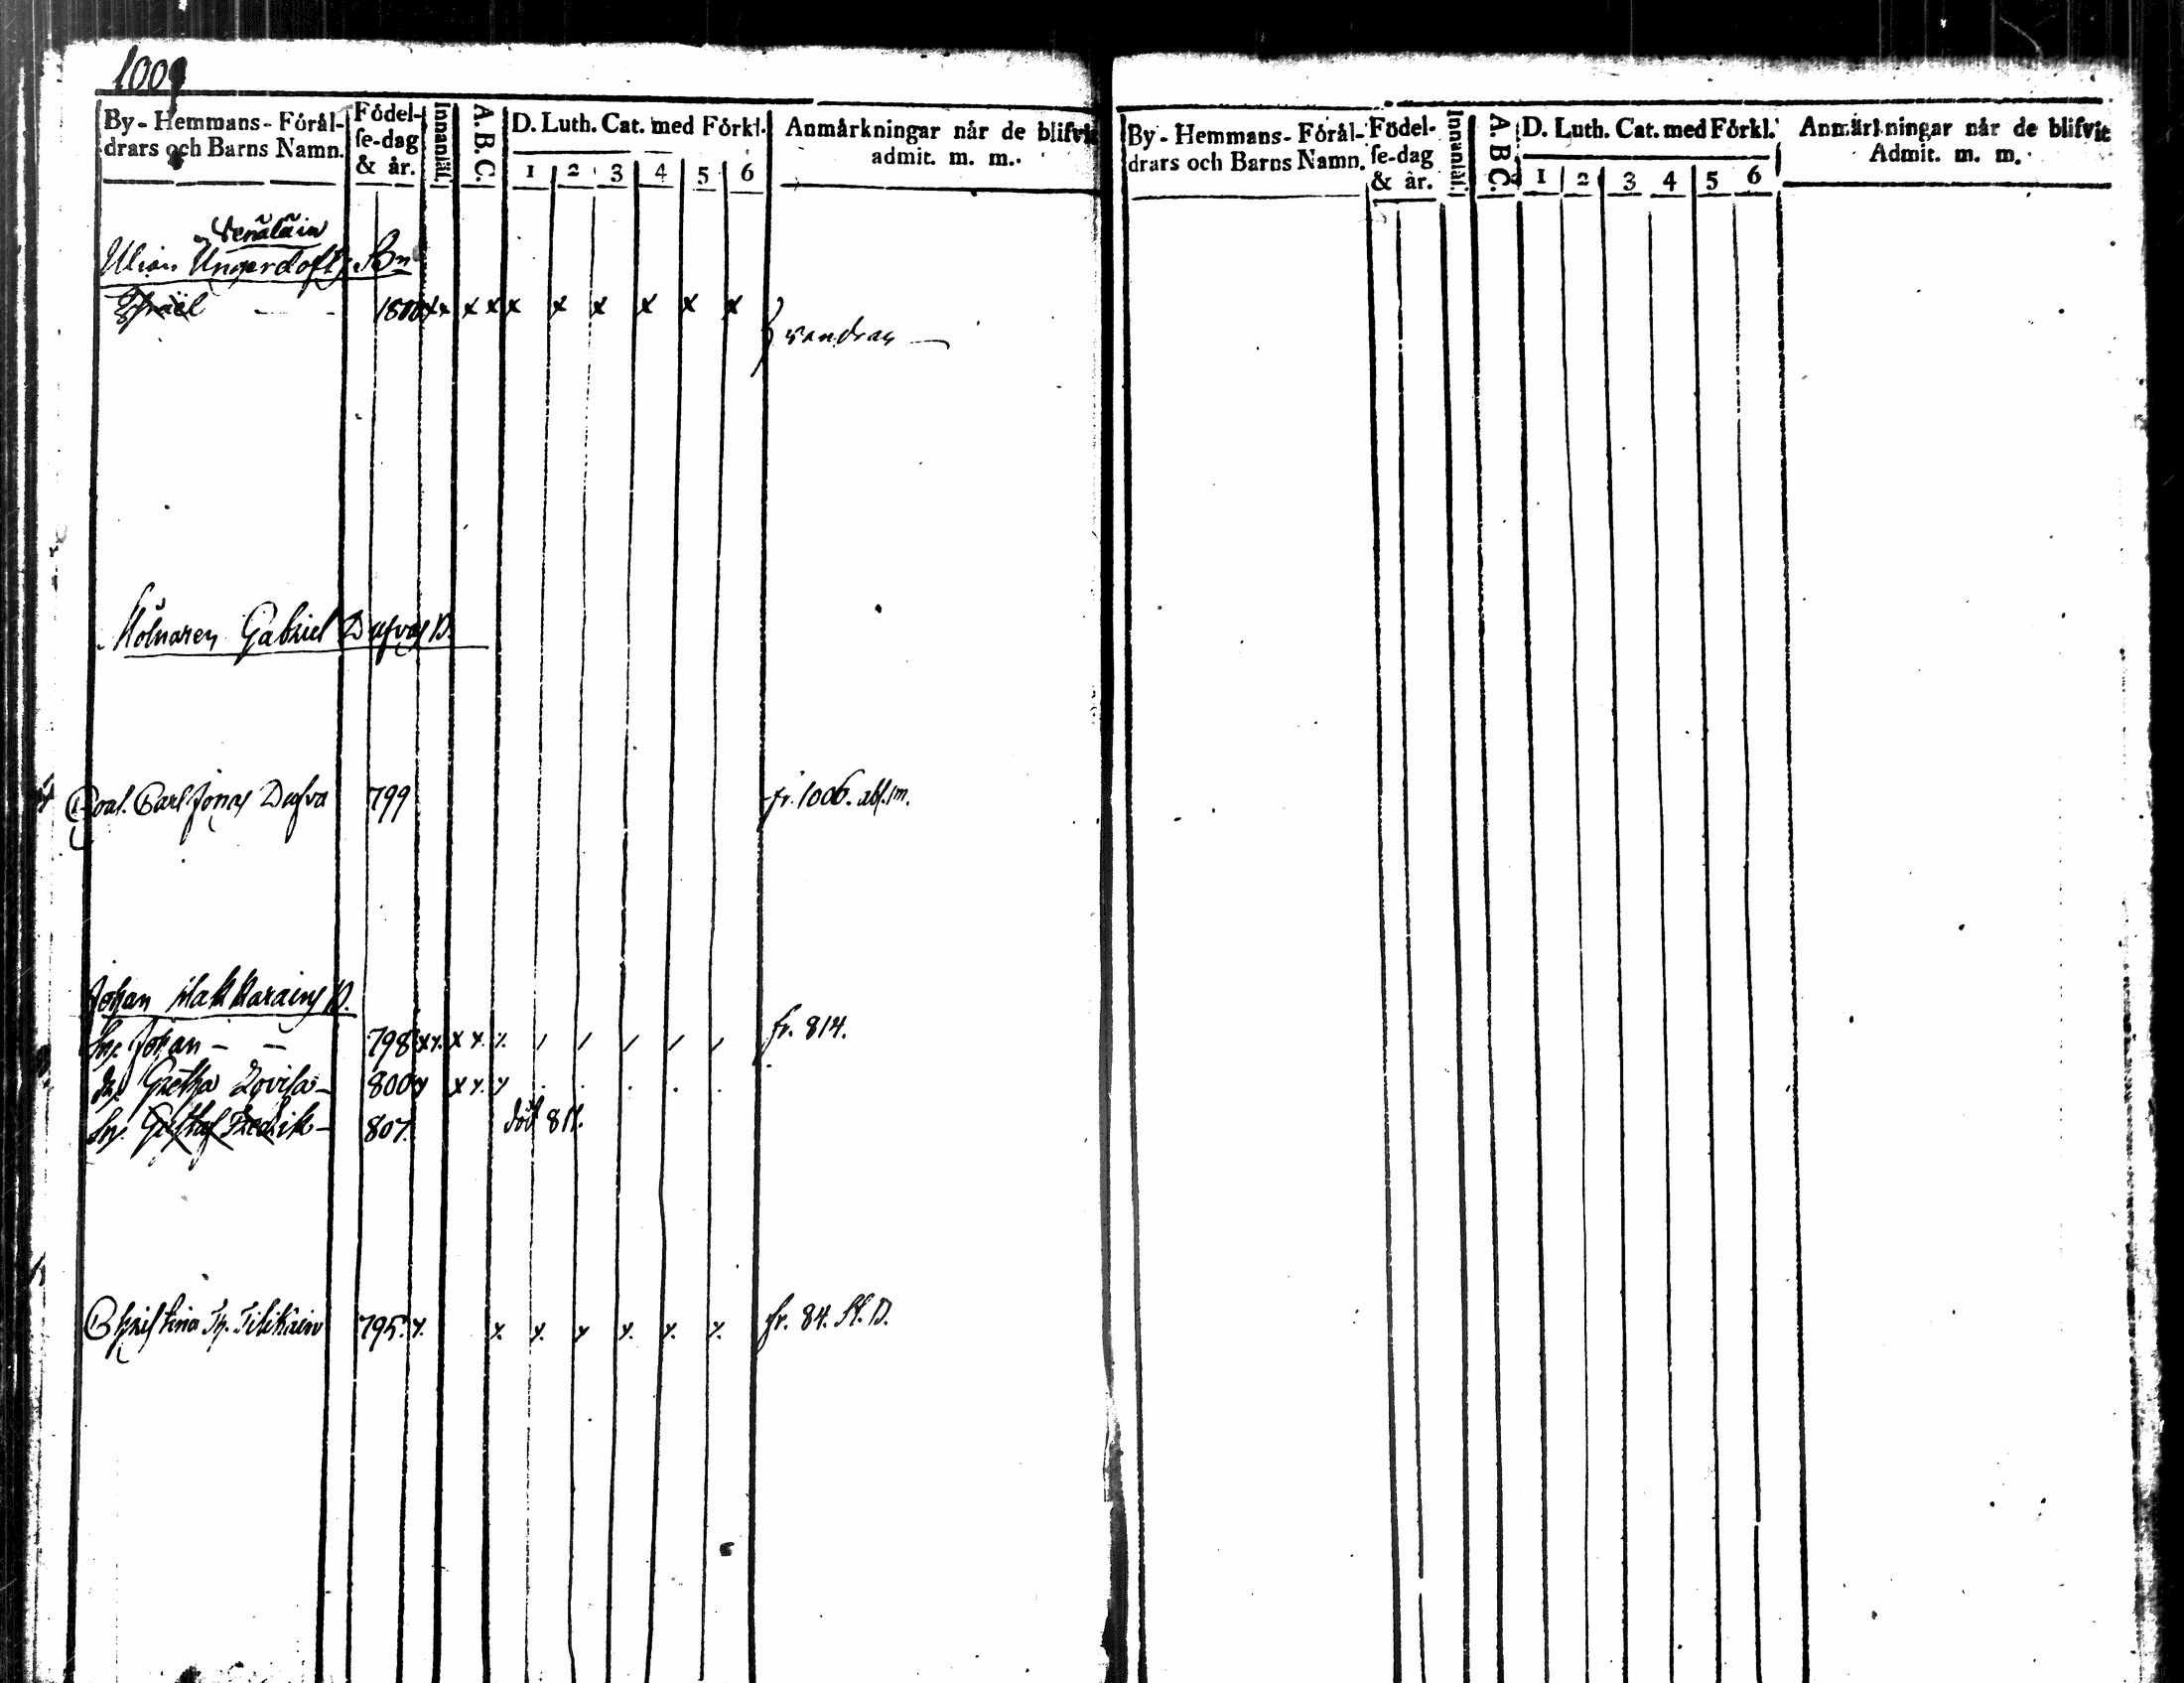 1009
By-Hemmans-Förål-
drars och Barns Namn.
Födel-
se-dag
& år.
Innanläs.
A.B.C.
D. Luth. Cat. med Förkl.
1 2 3 4 5 6
Anmårkningar når de blifvit
admit. m. m.
Venäläin
Ulian Ungerdofts Bn
Isräel 1800 x x x x x x x x x x
vandrar
Mölnaren Gabriel Dufvas B.
Carl Jonas Dufva 799 fr. 1006. abs. m.
Johan Makkarains B.
Sn. Johan 798 x x. x x. x. / / / / / fr. 814.
Dr. Gretha Lovisa 800 x x x. x
Sn. Gustaf Fredrik 807. död 811.
Christina Tikkain 795. x. x. x. x x. x. x. fr. 84. St. B.
By-Hemmans-Förål-
drars och Barns Namn.
Födel-
se-dag
& år.
Innanläs.
A.B.C.
D. Luth. Cat. med Förkl.
1 2 3 4 5 6
Anmärkningar når de blifvit
Admit. m. m.